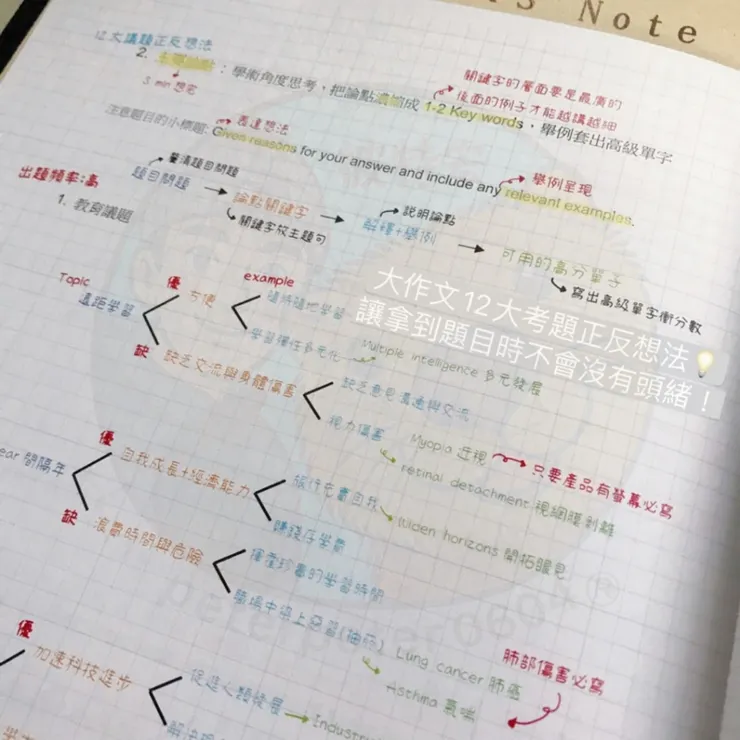 S Note
12 大議題正反想法
2.
:學術角度思考,把論點濃縮成 1-2 Key words,舉例套出高級單字
3 min 想完
關鍵字的層面要是最廣的
後面的例子才能越講越細
表達想法
注意題目的小標題: Given reasons for your answer and include any relevant examples.
舉例呈現
釐清題目問題
出題頻率:高
題目問題 → 論點關鍵字 → 解釋+舉例 → 可用的高分單字
關鍵字放主題句
說明論點
寫出高級單字衝分數
1. 教育議題
大作文12大考題正反想法💡
讓拿到題目時不會沒有頭緒!
Topic
遠距學習
優
方便
example
隨時隨地學習
學習彈性多元化 → Multiple intelligence 多元發展
缺
缺乏交流與身體傷害
缺乏意見溝通與交流
視力傷害
Myopia 近視
只要產品有螢幕必寫
retinal detachment 視網膜剝離
ear 間隔年
優
自我成長+經濟能力
旅行充實自我
Widen horizons 開拓眼見
賺錢存學費
缺
浪費時間與危險
獲當珍貴的學習時間
職場中染上惡習(抽菸)
Lung cancer 肺癌
Asthma 氣喘
肺部傷害必寫
優
加速科技進步
促進人類發展 → Industry